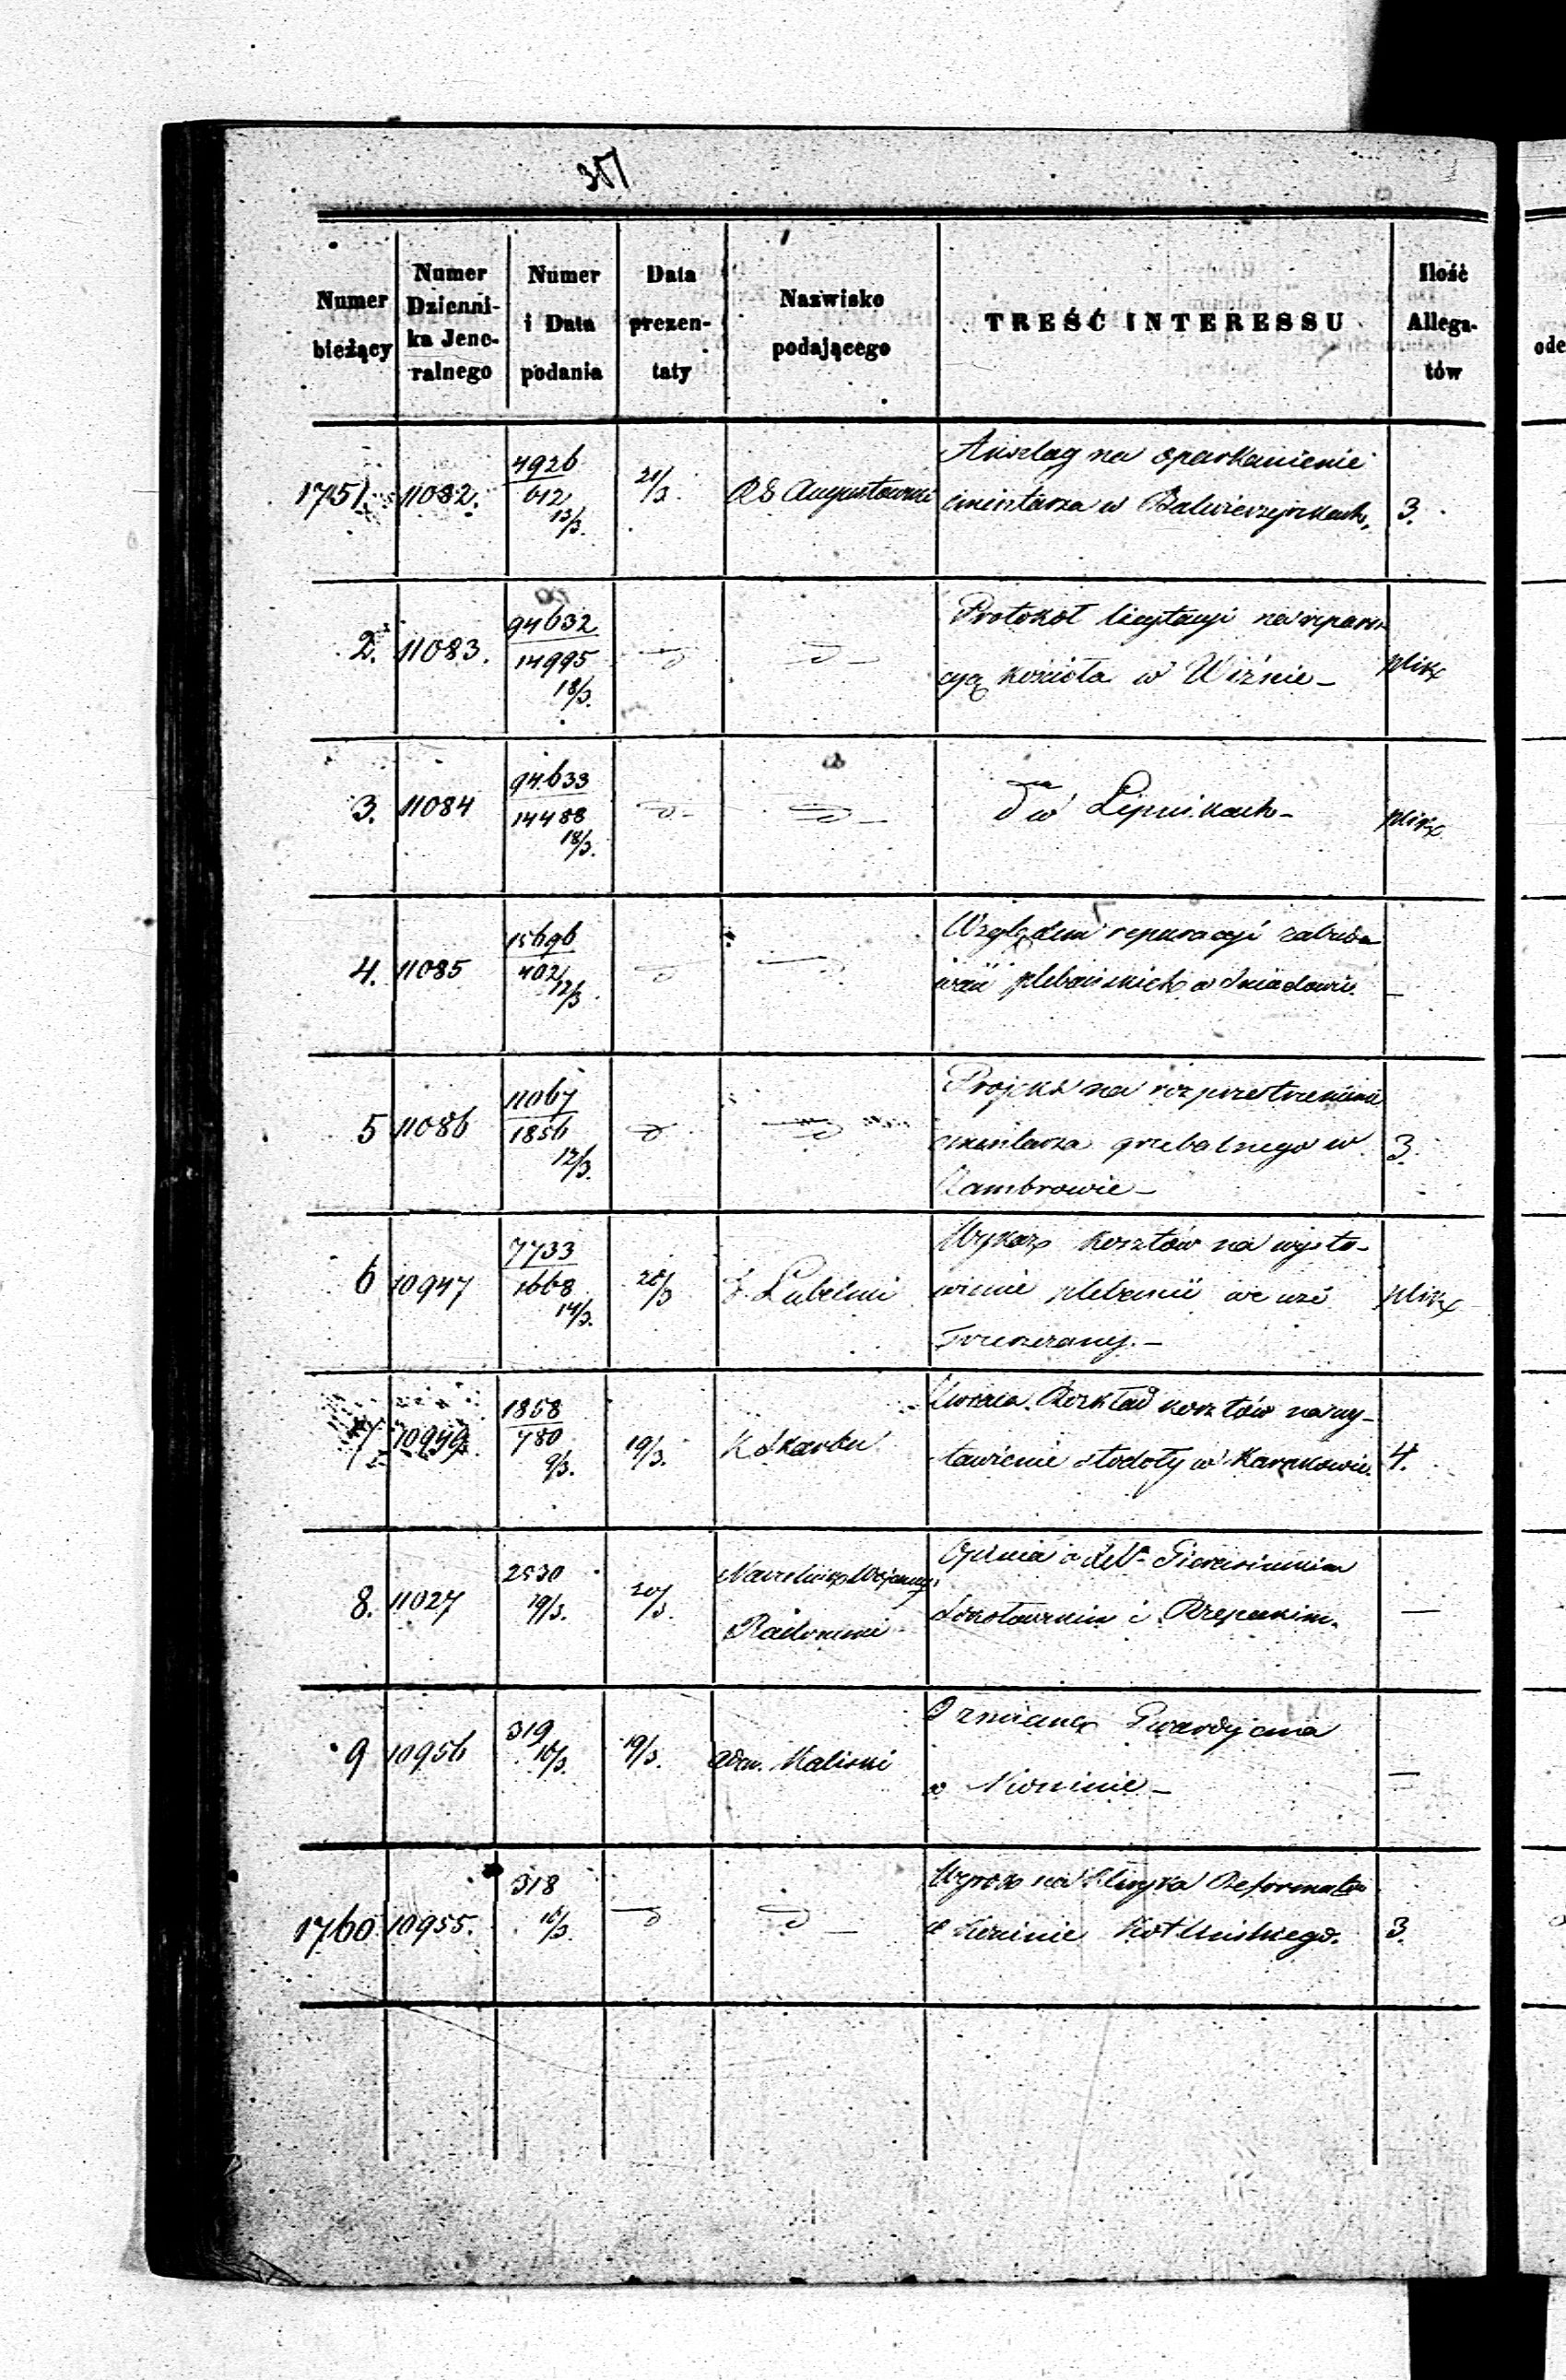 351
Numer bieżący | Numer Dzienni- ka Jene- ralnego | Numer i Data podania | Data prezen- taty | Nazwisko podającego | TREŚĆ INTERESSU | Ilość Allega- tów
1751. 11082. 4926 / 612 13/3. 21/3. RG Augustowski Anszlag na oparkanienie
cmentarza w Balwierzyszkach. 3.
2. 11083. 94632 / 14995 18/3. d d Protokół licytacyi na repara
cyą kościoła w Wiźnie – plik
3. 11084 94633 / 14488 18/3. d d d w Lipnikach – plik
4. 11085 15696 / 402 12/3 d d Względem reparacyi zabudo
wań plebańskich w Śniadowie. –
5 11086 11067 / 1856 12/3. d d Projekt na rozprzestrzenienie
cmentarza grzebalnego w 3.
Zambrowie –
6 10947 7733 / 1668 14/3. 20/3 Lubelski Wykaz kosztów na wysta-
wienie plebanii we wsi plik
7 10949. 1858 / 780 9/3. 19/3. K Skarbu Rozkład kosztów na wy-
stawienie stodoły w 4.
8. 11027 2530 19/3. 20/3. Naczelnik Wojenny Opinia o
Radomski i –
9 10956 319 16/3. 19/3. Adm. Kaliski O zmianę Gwardyana
w –
1760 10955. 318 16/3. d d Wyrok na Kleryka Reformatów
w 3.
ode